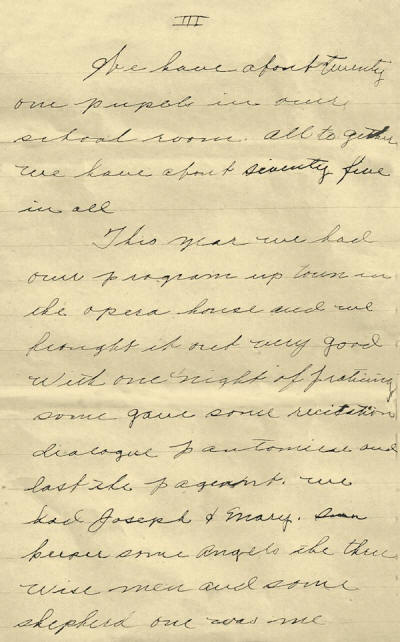 III
We have about twenty
one pupels in our
school room. all to gether
we have about seventy five
in all
This year we had
our program up town in
the opera house and we
brought it out very good
with one night of praticing
some gave some recitation
dialogue pantomine and
last the pageant. we
had Joseph & Mary.
some angels the three
wise men and some
shepherd one was me